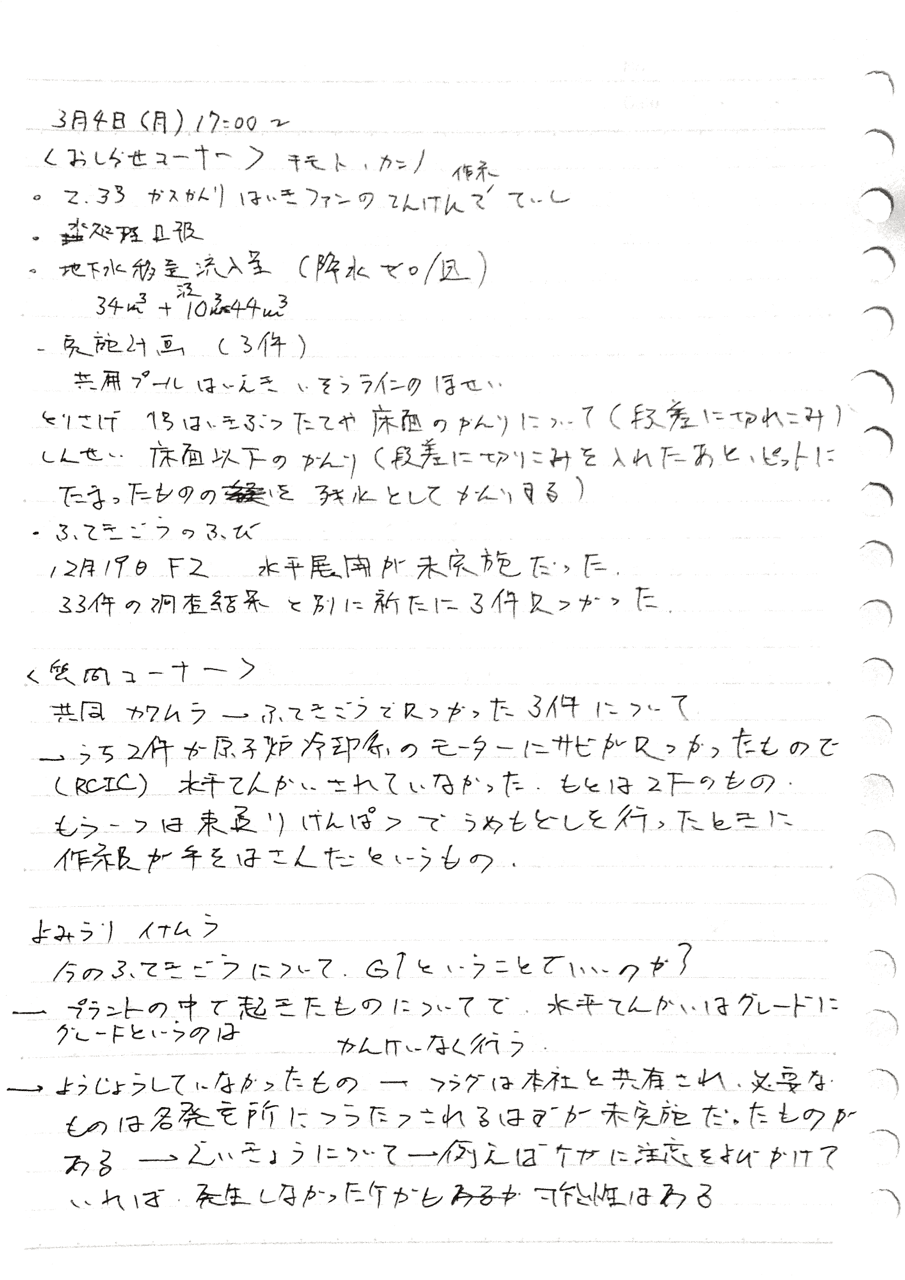 3月4日(月)17:00~
<おしらせコーナー> キモト、カンノ
作業
・2.33 ガスかんり はいきファンのてんけんで ていし
・処理
・地下水移送流入量(降水ゼロ/週)
34m³+10m³=44m³
-実施計画(3件)
共用プールはいえき いそうラインのほせい
とりさげ 1号はいきぶつたてや 床面のかんりについて(段差に切れこみ)
しんせい 床面以下のかんり(段差に切りこみを入れたあと、ピットに
たまったものを 残水としてかんりする)
・ふてきごうのふび
12月19日 F2 水平展開が未実施だった.
33件の調査結果と別に新たに3件見つかった.
<質問コーナー>
共同 カワムラ→ふてきごうで見つかった3件について
→うち2件が原子炉冷却系のモーターにサビが見つかったもので
(RCIC) 水平てんかいされていなかった. もとは2Fのもの.
もう一つは東通りけんぱつでうめもどしを行ったときに
作業員が手をはさんだというもの.
よみうり イナムラ
今のふてきごうについて. G1ということでいいのか?
→ プラントの中で起きたものについてで. 水平てんかいはグレードに
グレードというのは
かんけいなく行う.
→ようじょうしていなかったもの → フラグは本社と共有され、必要な
ものは各発電所につうたつされるはずが未実施だったものが
ある →えいきょうについて→例えばケガに注意をよびかけて
いれば、発生しなかったケガも 可能性はある